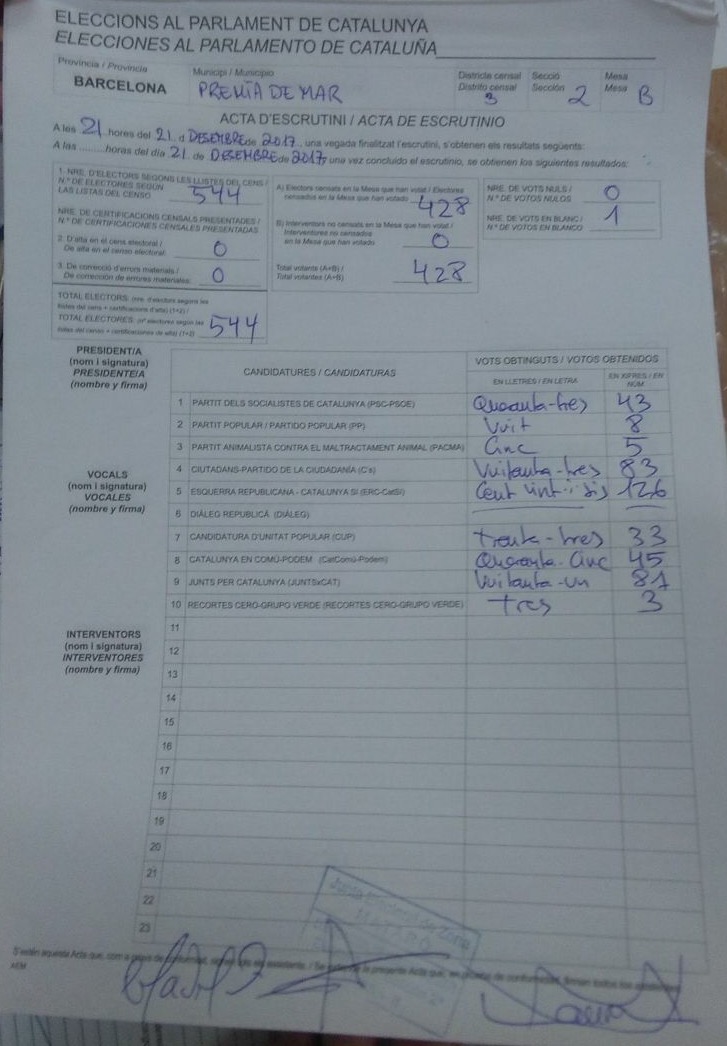 ELECCIONS AL PARLAMENT DE CATALUNYA
ELECCIONES AL PARLAMENTO DE CATALUÑA
Provincia / Provincia
BARCELONA
Municipi / Municipio
PREMIÀ DE MAR
Districte censal
Distrito censal
3
Secció
Sección 2
Mesa
Mesa B
ACTA D'ESCRUTINI / ACTA DE ESCRUTINIO
A les 21 hores del 21 d DESEMBRE de 2017, una vegada finalitzat l'escrutini, s'obtenen els resultats següents:
A las ........ horas del día 21 de DESEMBRE de 2017, una vez concluido el escrutinio, se obtienen los siguientes resultados:
1. NRE. D'ELECTORS SEGONS LES LLISTES DEL CENS /
N.º DE ELECTORES SEGÚN
LAS LISTAS DEL CENSO 544
NRE. DE CERTIFICACIONS CENSALS PRESENTADES /
N.º DE CERTIFICACIONES CENSALES PRESENTADAS
2. D'alta en el cens electoral /
De alta en el censo electoral: 0
3. De correcció d'errors materials /
De corrección de errores materiales: 0
TOTAL ELECTORS: (nre. d'electors segons les
llistes del cens + certificacions d'alta) (1+2) /
TOTAL ELECTORES: (nº electores según las
listas del censo + certificaciones de alta) (1+2) 544
A) Electors censats en la Mesa que han votat / Electores
censados en la Mesa que han votado 428
B) Interventors no censats en la Mesa que han votat /
Interventores no censados
en la Mesa que han votado 0
Total votants (A+B) /
Total votantes (A+B) 428
NRE. DE VOTS NULS /
N.º DE VOTOS NULOS 0
NRE. DE VOTS EN BLANC /
N.º DE VOTOS EN BLANCO 1
PRESIDENT/A
(nom i signatura)
PRESIDENTE/A
(nombre y firma)
CANDIDATURES / CANDIDATURAS
VOTS OBTINGUTS / VOTOS OBTENIDOS
EN LLETRES / EN LETRA
EN XIFRES / EN
NÚM.
1 PARTIT DELS SOCIALISTES DE CATALUNYA (PSC-PSOE) Quaranta-tres 43
2 PARTIT POPULAR / PARTIDO POPULAR (PP) Vuit 8
3 PARTIT ANIMALISTA CONTRA EL MALTRACTAMENT ANIMAL (PACMA) Cinc 5
4 CIUTADANS-PARTIDO DE LA CIUDADANÍA (C's) Vuitanta-tres 83
5 ESQUERRA REPUBLICANA - CATALUNYA SÍ (ERC-CatSí) Cent vint-i-sis 126
6 DIÀLEG REPUBLICÀ (DIÀLEG)
7 CANDIDATURA D'UNITAT POPULAR (CUP) trenta-tres 33
8 CATALUNYA EN COMÚ-PODEM (CatComú-Podem) Quaranta-cinc 45
9 JUNTS PER CATALUNYA (JUNTSxCAT) Vuitanta-un 81
10 RECORTES CERO-GRUPO VERDE (RECORTES CERO-GRUPO VERDE) tres 3
VOCALS
(nom i signatura)
VOCALES
(nombre y firma)
INTERVENTORS
(nom i signatura)
INTERVENTORES
(nombre y firma)
11
12
13
14
15
16
17
18
19
20
21
22
23
Junta Electoral de Zona
MATARÓ